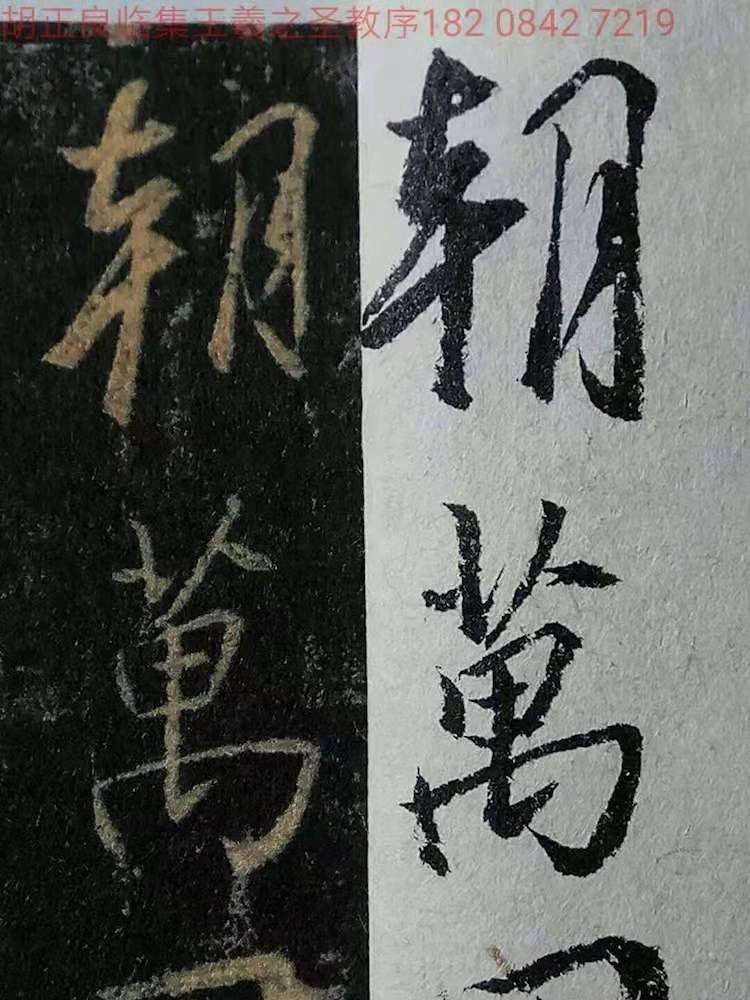 胡正良临集王羲之圣教序182 0842 7219
朝 朝
萬 萬